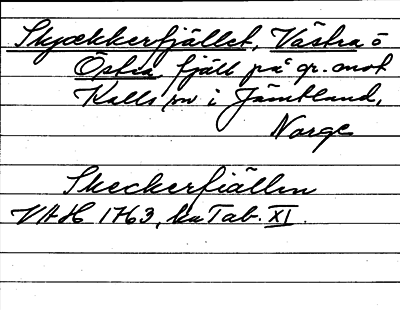 Skjækkerfjället, Västra o
Östra fjäll på gr. mot
Kalls sn i Jämtland,
Norge
Skeckerfiällen
VAH 1763, ka Tab. XI.